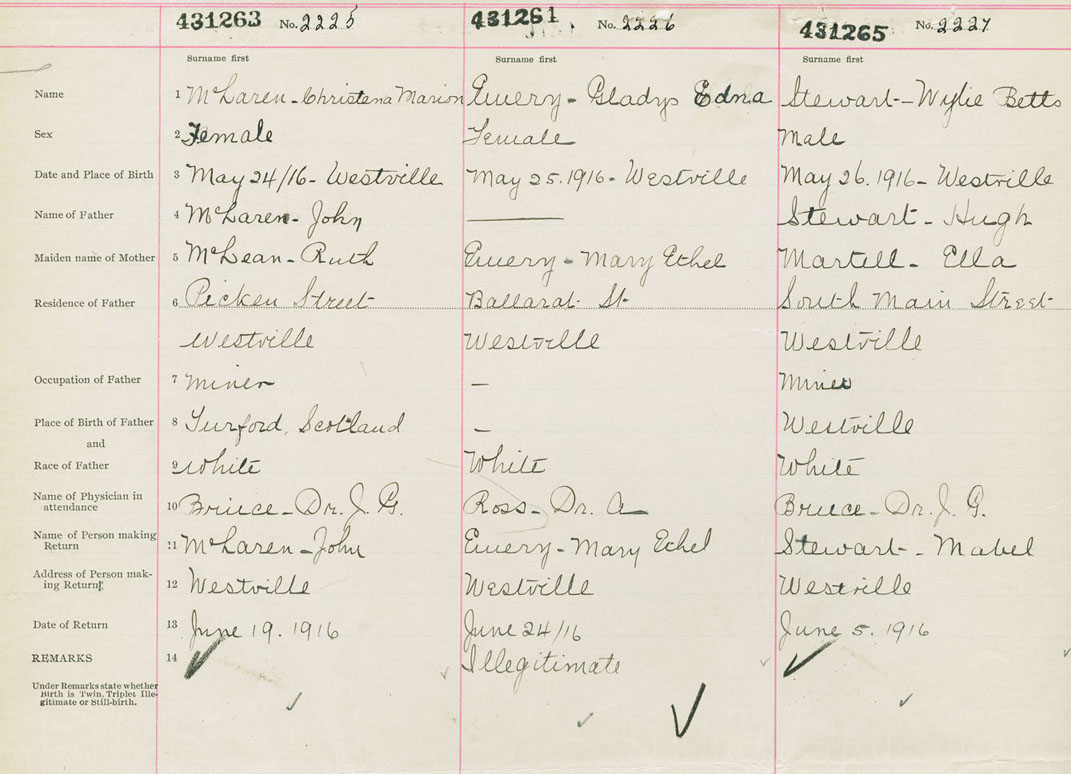 431263 No. 2225 431261 No. 2226 431265 No. 2227
Surname first Surname first Surname first
Name 1 McLaren - Christena Marion Emery - Gladys Edna Stewart - Wylie Betts
Sex 2 Female Female Male
Date and Place of Birth 3 May 24/16 - Westville May 25. 1916 - Westville May 26. 1916 - Westville
Name of Father 4 McLaren - John —— Stewart - Hugh
Maiden name of Mother 5 McLean - Ruth Emery - Mary Ethel Martell - Ella
Residence of Father 6 Picken Street Ballarat St South Main Street
Westville Westville Westville
Occupation of Father 7 Miner — Miner
Place of Birth of Father 8 Scotland — Westville
and
Race of Father 9 White White White
Name of Physician in
attendance 10 Bruce - Dr. J. G. Ross - Dr. A Bruce - Dr. J. G.
Name of Person making
Return 11 McLaren - John Emery - Mary Ethel Stewart - Mabel
Address of Person mak-
ing Return 12 Westville Westville Westville
Date of Return 13 June 19. 1916 June 24/16 June 5. 1916
REMARKS 14 ✓ Illegitimate ✓
Under Remarks state whether
Birth is Twin, Triplet Ille-
gitimate or Still-birth.